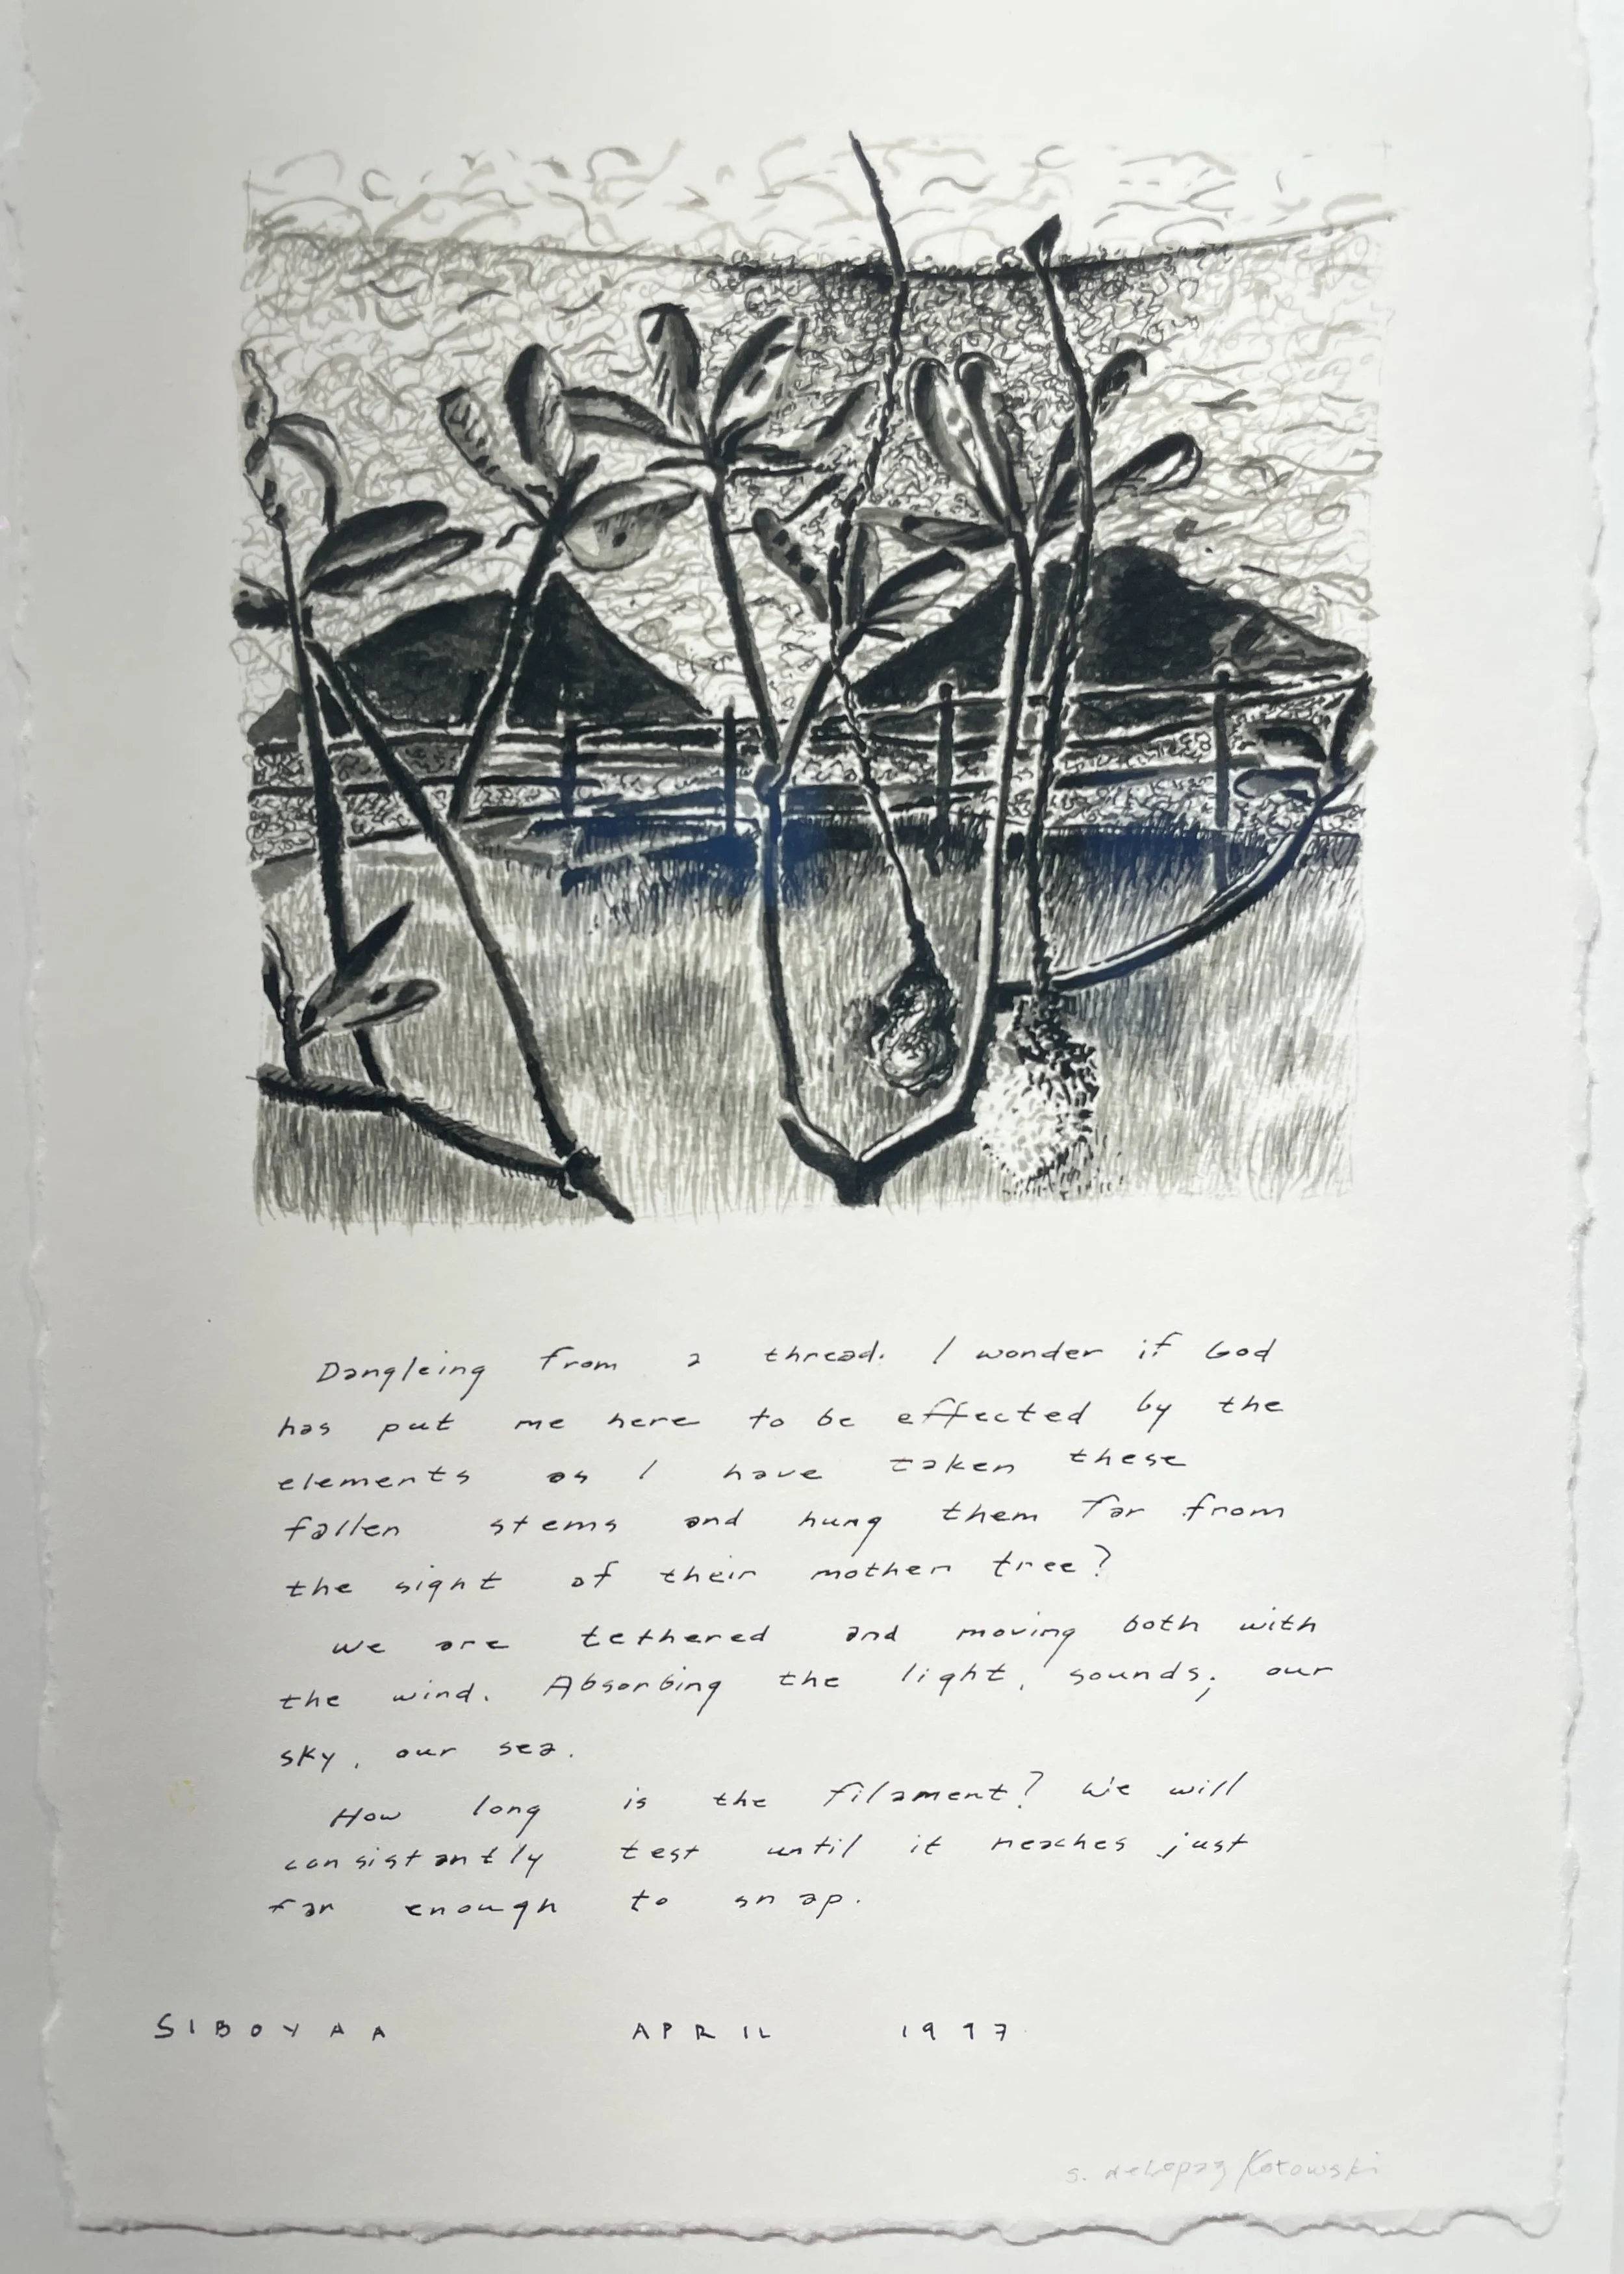 Dangleing from a thread. I wonder if God
has put me here to be effected by the
elements as I have taken these
fallen stems and hung them far from
the sight of their mother tree?
we are tethered and moving both with
the wind. Absorbing the light, sounds; our
sky, our sea.
How long is the filament? We will
consistantly test until it reaches just
far enough to snap.
SIBOYAA APRIL 1997
s. Kotowski